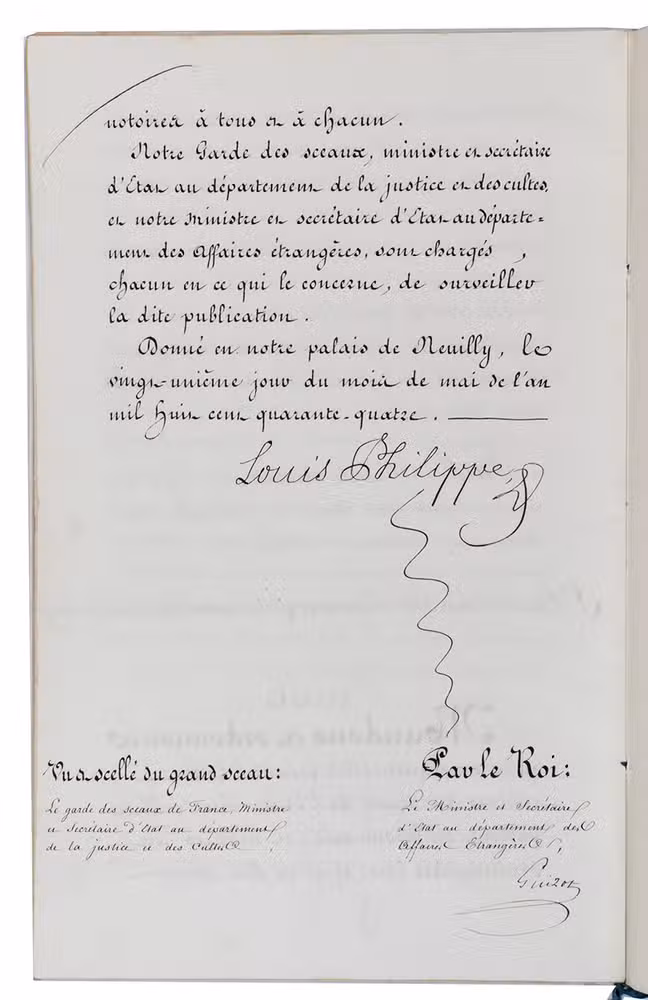 notoires à tous et à chacun.
Notre Garde des sceaux, ministre et secrétaire
d'Etat au département de la justice et des cultes,
et notre Ministre et secrétaire d'Etat au départe=
ment des Affaires étrangères, sont chargés,
chacun en ce qui le concerne, de surveiller
la dite publication.
Donné en notre palais de Neuilly, le
vingt-unième jour du mois de mai de l'an
mil huit cent quarante-quatre.
Louis Philippe
Vu et scellé du grand sceau:
Le garde des sceaux de France, Ministre
et Secrétaire d'Etat au département
de la justice et des Cultes,
Par le Roi:
Le Ministre et Secrétaire
d'Etat au département des
Affaires Etrangères,
Guizot